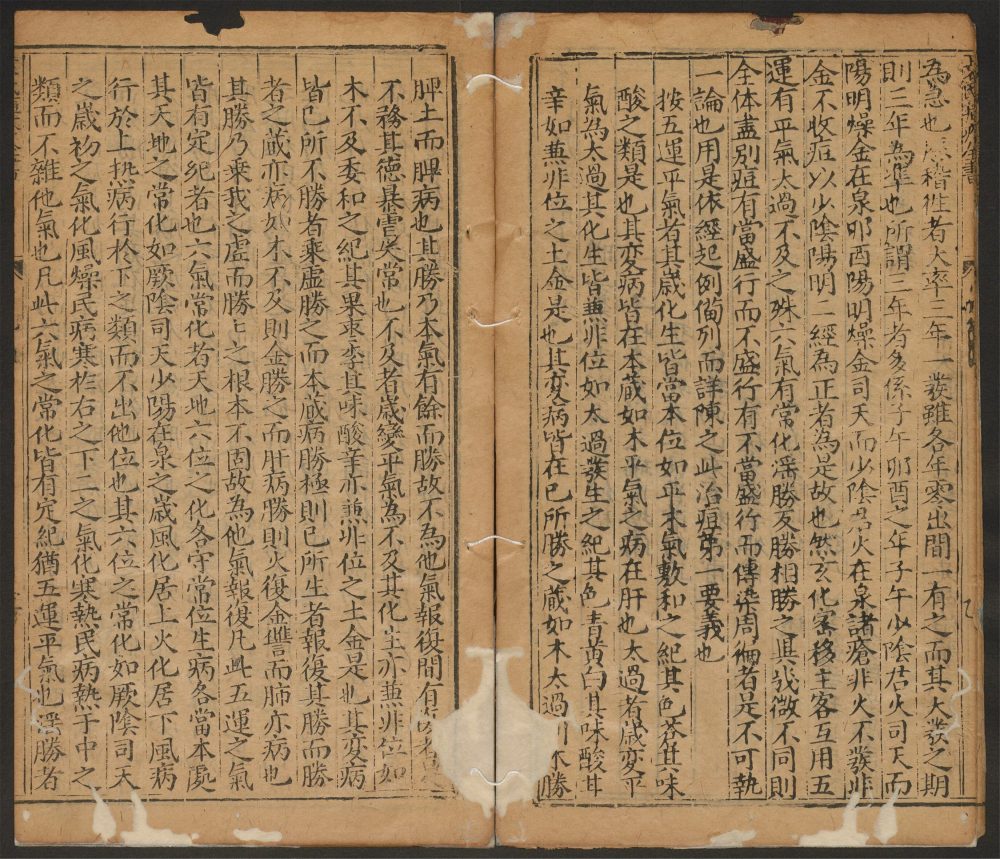 為急也愿稽徃者大率三年一發雖各年零出間一有之而其大發之期
則三年為準也所謂三年者多係子午卯酉之年子午少陰君火司天而
陽明燥金在泉卯酉陽明燥金司天而少陰君火在泉諸瘡非火不發非
金不收痘以少陰陽明二經為正者為是故也然玄化宻移主客互用五
運有平氣太過不及之殊六氣有常化淫勝反勝相勝之異㢤微不同則
全体盡別痘有當盛行而不盛行有不當盛行而傳染周徧者是不可執
一論也用是依經起例備列而詳陳之此治痘第一要義也
按五運平氣者其歲化生皆當本位如平木氣敷和之紀其色蒼其味
酸之類是也其変病皆在本蔵如木平氣之病在肝也太過者歲変平
氣為太過其化生皆兼非位如太過發生之紀其色青黄白其味酸甘
辛如兼非位之土金是也其変病皆在已所勝之蔵如木太過則木勝
脾土而脾病也其勝乃本氣有餘而勝故不為他氣報復間有
不務其德暴雪失常也不及者歲變平氣為不及其化生亦兼非位如
木不及委和之紀其果棗李其味酸辛亦兼非位之土金是也其変病
皆已所不勝者乘虛勝之而本蔵病勝極則已所生者報復其勝而勝
者之蔵亦病如木不及則金勝之而肝病勝則火復金讐而肺亦病也
其勝乃乗我之虛而勝上之根本不固故為他氣報復凡此五運之氣
皆有定紀者也六氣常化者天地六位之化各守常位生病各當本處
其天地之常化如厥隂司天少陽在泉之歲風化居上火化居下風病
行於上熱病行於下之類而不出他位也其六位之常化如厥隂司天
之歲初之氣化風燥民病寒於右之下二之氣化寒熱民病熱于中之
類而不雜他氣也凡此六氣之常化皆有定紀猶五運平氣也淫勝者